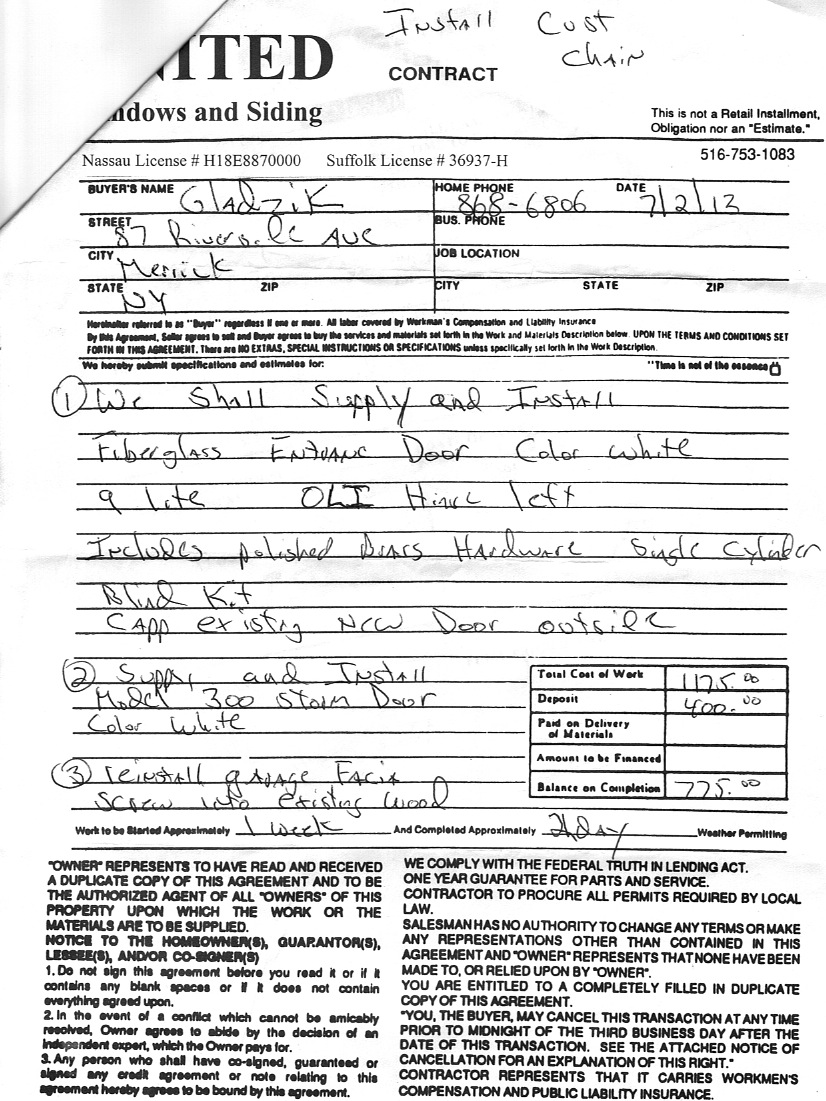 Install Cust
Chain
NITED
CONTRACT
ndows and Siding
This is not a Retail Installment,
Obligation nor an "Estimate."
Nassau License # H18E8870000 Suffolk License # 36937-H
516-753-1083
BUYER'S NAME Gladzik HOME PHONE 868-6806 DATE 7/2/13
STREET 87 Riverside Ave BUS. PHONE
CITY Merrick JOB LOCATION
STATE NY ZIP CITY STATE ZIP
Hereinafter referred to as "Buyer" regardless if one or more. All labor covered by Workman's Compensation and Liability Insurance
By this Agreement, Seller agrees to sell and Buyer agrees to buy the services and materials set forth in the Work and Materials Description below. UPON THE TERMS AND CONDITIONS SET
FORTH IN THIS AGREEMENT. There are NO EXTRAS, SPECIAL INSTRUCTIONS OR SPECIFICATIONS unless specifically set forth in the Work Description.
We hereby submit specifications and estimates for: "Time is not of the essence
1 We Shall Supply and Install
Fiberglass Entranc Door Color White
9 lite OLI Hinge left
Includes polished Brass Hardware Single Cylinder
Blind Kit
Capp existing New Door outside
2 Supply and Install
Model 300 Storm Door
Color White
Total Cost of Work 1175.00
Deposit 400.00
Paid on Delivery
of Materials
Amount to be Financed
Balance on Completion 775.00
3 reinstall garage Facia
Screw into existing wood
Work to be Started Approximately 1 week And Completed Approximately day Weather Permitting
"OWNER" REPRESENTS TO HAVE READ AND RECEIVED
A DUPLICATE COPY OF THIS AGREEMENT AND TO BE
THE AUTHORIZED AGENT OF ALL "OWNERS" OF THIS
PROPERTY UPON WHICH THE WORK OR THE
MATERIALS ARE TO BE SUPPLIED.
NOTICE TO THE HOMEOWNER(S), GUARANTOR(S),
LESSEE(S), AND/OR CO-SIGNER(S)
1. Do not sign this agreement before you read it or if it
contains any blank spaces or if it does not contain
everything agreed upon.
2. In the event of a conflict which cannot be amicably
resolved, Owner agrees to abide by the decision of an
independent expert, which the Owner pays for.
3. Any person who shall have co-signed, guaranteed or
signed any credit agreement or note relating to this
agreement hereby agrees to be bound by this agreement.
WE COMPLY WITH THE FEDERAL TRUTH IN LENDING ACT.
ONE YEAR GUARANTEE FOR PARTS AND SERVICE.
CONTRACTOR TO PROCURE ALL PERMITS REQUIRED BY LOCAL
LAW.
SALESMAN HAS NO AUTHORITY TO CHANGE ANY TERMS OR MAKE
ANY REPRESENTATIONS OTHER THAN CONTAINED IN THIS
AGREEMENT AND "OWNER" REPRESENTS THAT NONE HAVE BEEN
MADE TO, OR RELIED UPON BY "OWNER".
YOU ARE ENTITLED TO A COMPLETELY FILLED IN DUPLICATE
COPY OF THIS AGREEMENT.
"YOU, THE BUYER, MAY CANCEL THIS TRANSACTION AT ANY TIME
PRIOR TO MIDNIGHT OF THE THIRD BUSINESS DAY AFTER THE
DATE OF THIS TRANSACTION. SEE THE ATTACHED NOTICE OF
CANCELLATION FOR AN EXPLANATION OF THIS RIGHT."
CONTRACTOR REPRESENTS THAT IT CARRIES WORKMEN'S
COMPENSATION AND PUBLIC LIABILITY INSURANCE.